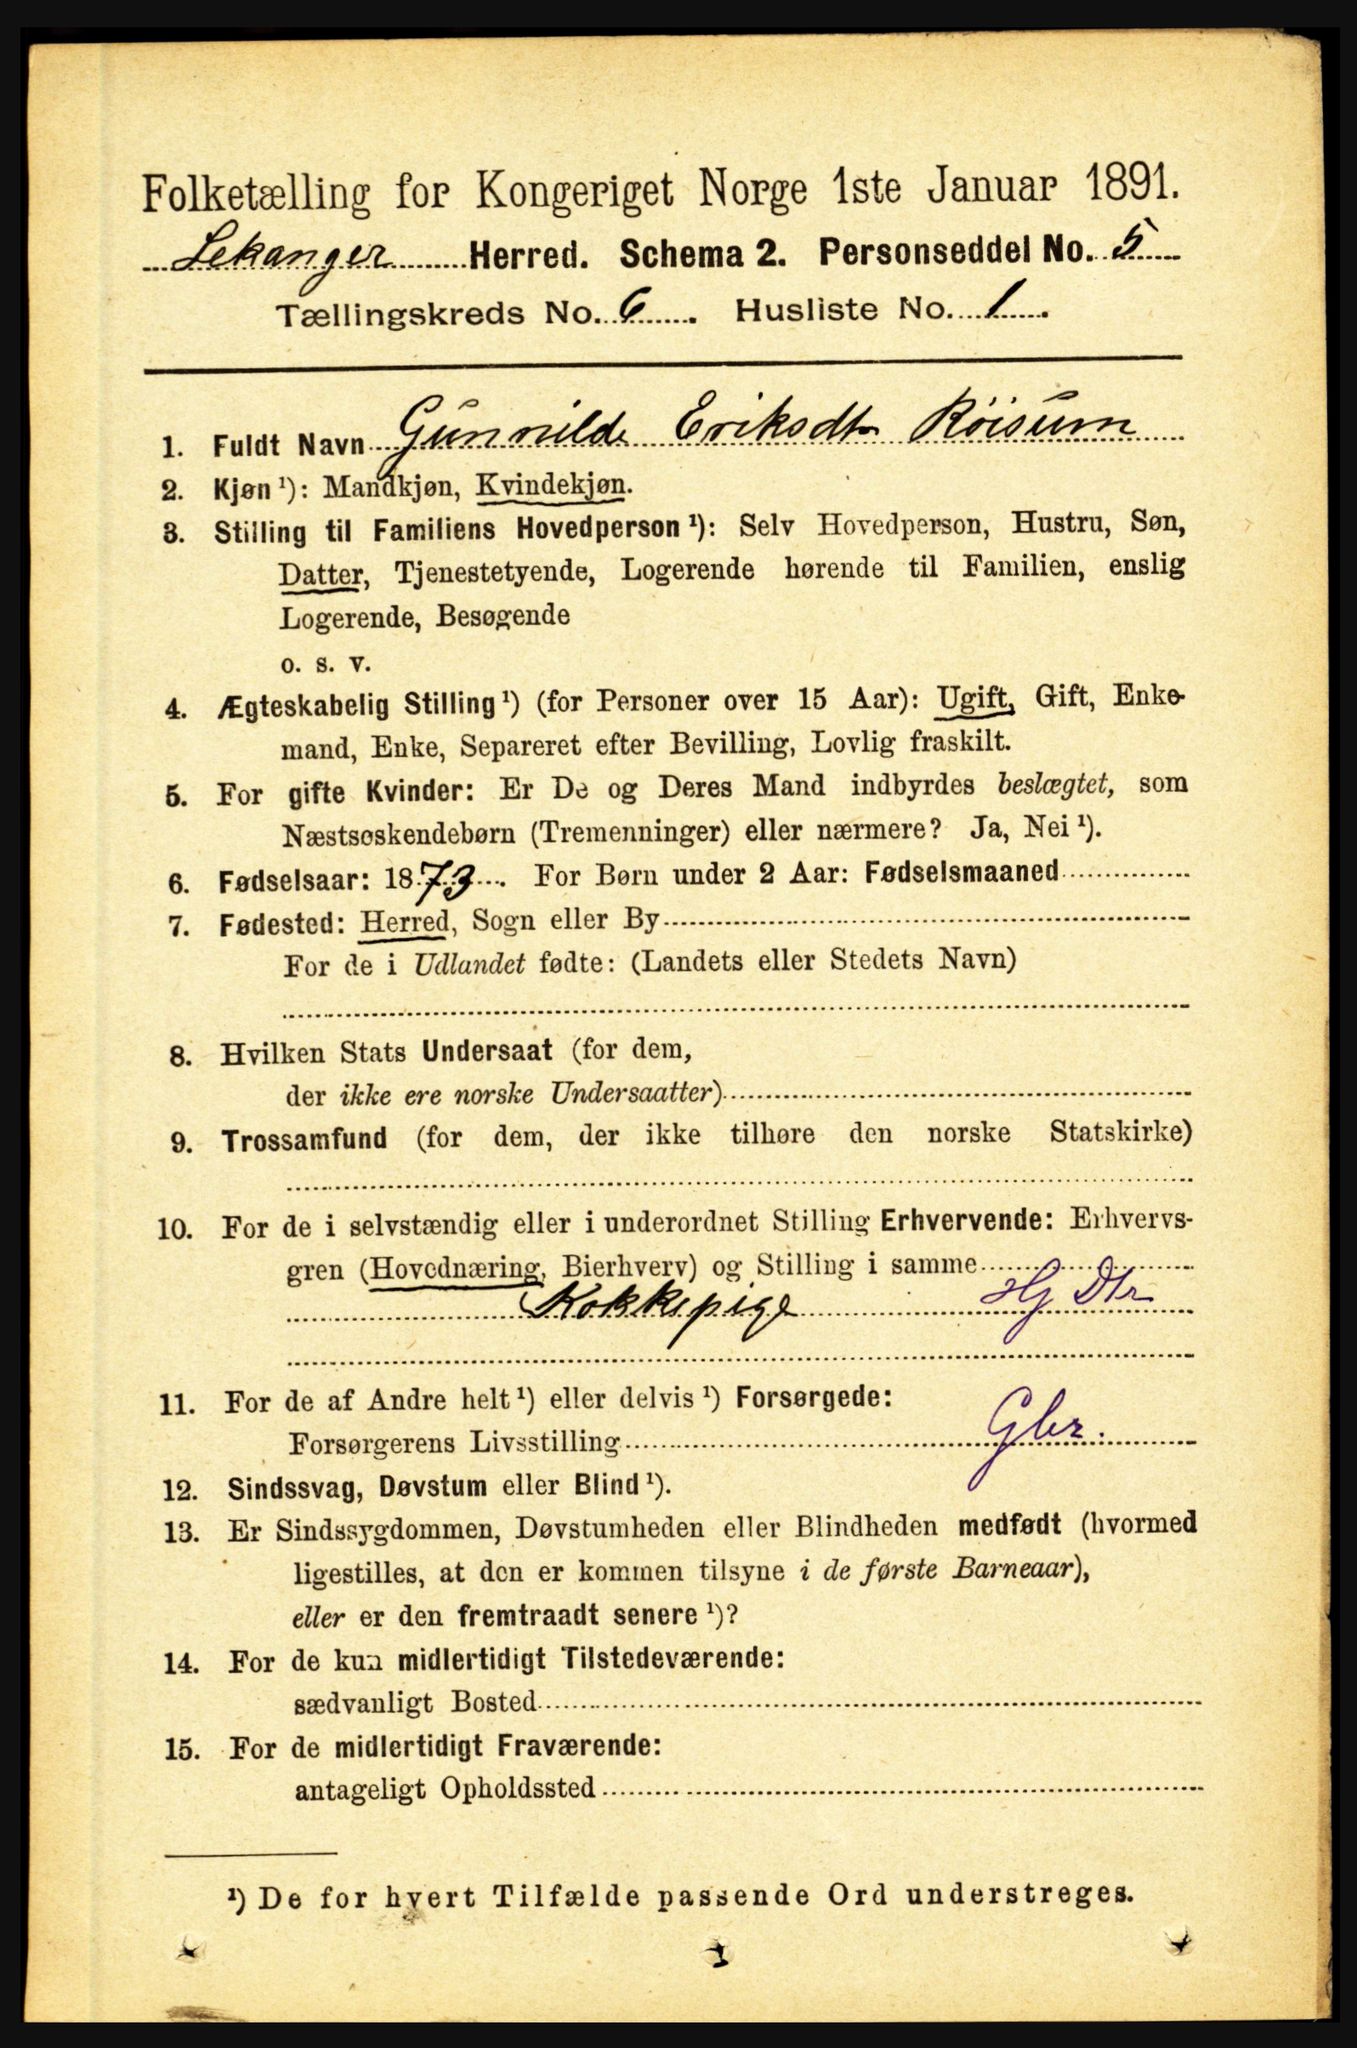 Folketælling for Kongeriget Norge 1ste Januar 1891.
Lekanger Herred. Schema 2. Personseddel No. 5
Tællingskreds No. 6. Husliste No. 1.
1. Fuldt Navn Gunnilde Eriksdtr Röisum
2. Kjøn ¹): Mandkjøn, Kvindekjøn.
3. Stilling til Familiens Hovedperson ¹): Selv Hovedperson, Hustru, Søn,
Datter, Tjenestetyende, Logerende hørende til Familien, enslig
Logerende, Besøgende
o. s. v.
4. Ægteskabelig Stilling ¹) (for Personer over 15 Aar): Ugift, Gift, Enke-
mand, Enke, Separeret efter Bevilling, Lovlig fraskilt.
5. For gifte Kvinder: Er De og Deres Mand indbyrdes beslægtet, som
Næstsøskendebørn (Tremenninger) eller nærmere? Ja, Nei ¹).
6. Fødselsaar: 1873. For Børn under 2 Aar: Fødselsmaaned
7. Fødested: Herred, Sogn eller By
For de i Udlandet fødte: (Landets eller Stedets Navn)
8. Hvilken Stats Undersaat (for dem,
der ikke ere norske Undersaatter)
9. Trossamfund (for dem, der ikke tilhøre den norske Statskirke)
10. For de i selvstændig eller i underordnet Stilling Erhvervende: Erhvervs-
gren (Hovednæring, Bierhverv) og Stilling i samme
Kokkepige Hg Dtr
11. For de af Andre helt ¹) eller delvis ¹) Forsørgede:
Forsørgerens Livsstilling Gbr.
12. Sindssvag, Døvstum eller Blind ¹).
13. Er Sindssygdommen, Døvstumheden eller Blindheden medfødt (hvormed
ligestilles, at den er kommen tilsyne i de første Barneaar),
eller er den fremtraadt senere ¹)?
14. For de kun midlertidigt Tilstedeværende:
sædvanligt Bosted
15. For de midlertidigt Fraværende:
antageligt Opholdssted
¹) De for hvert Tilfælde passende Ord understreges.